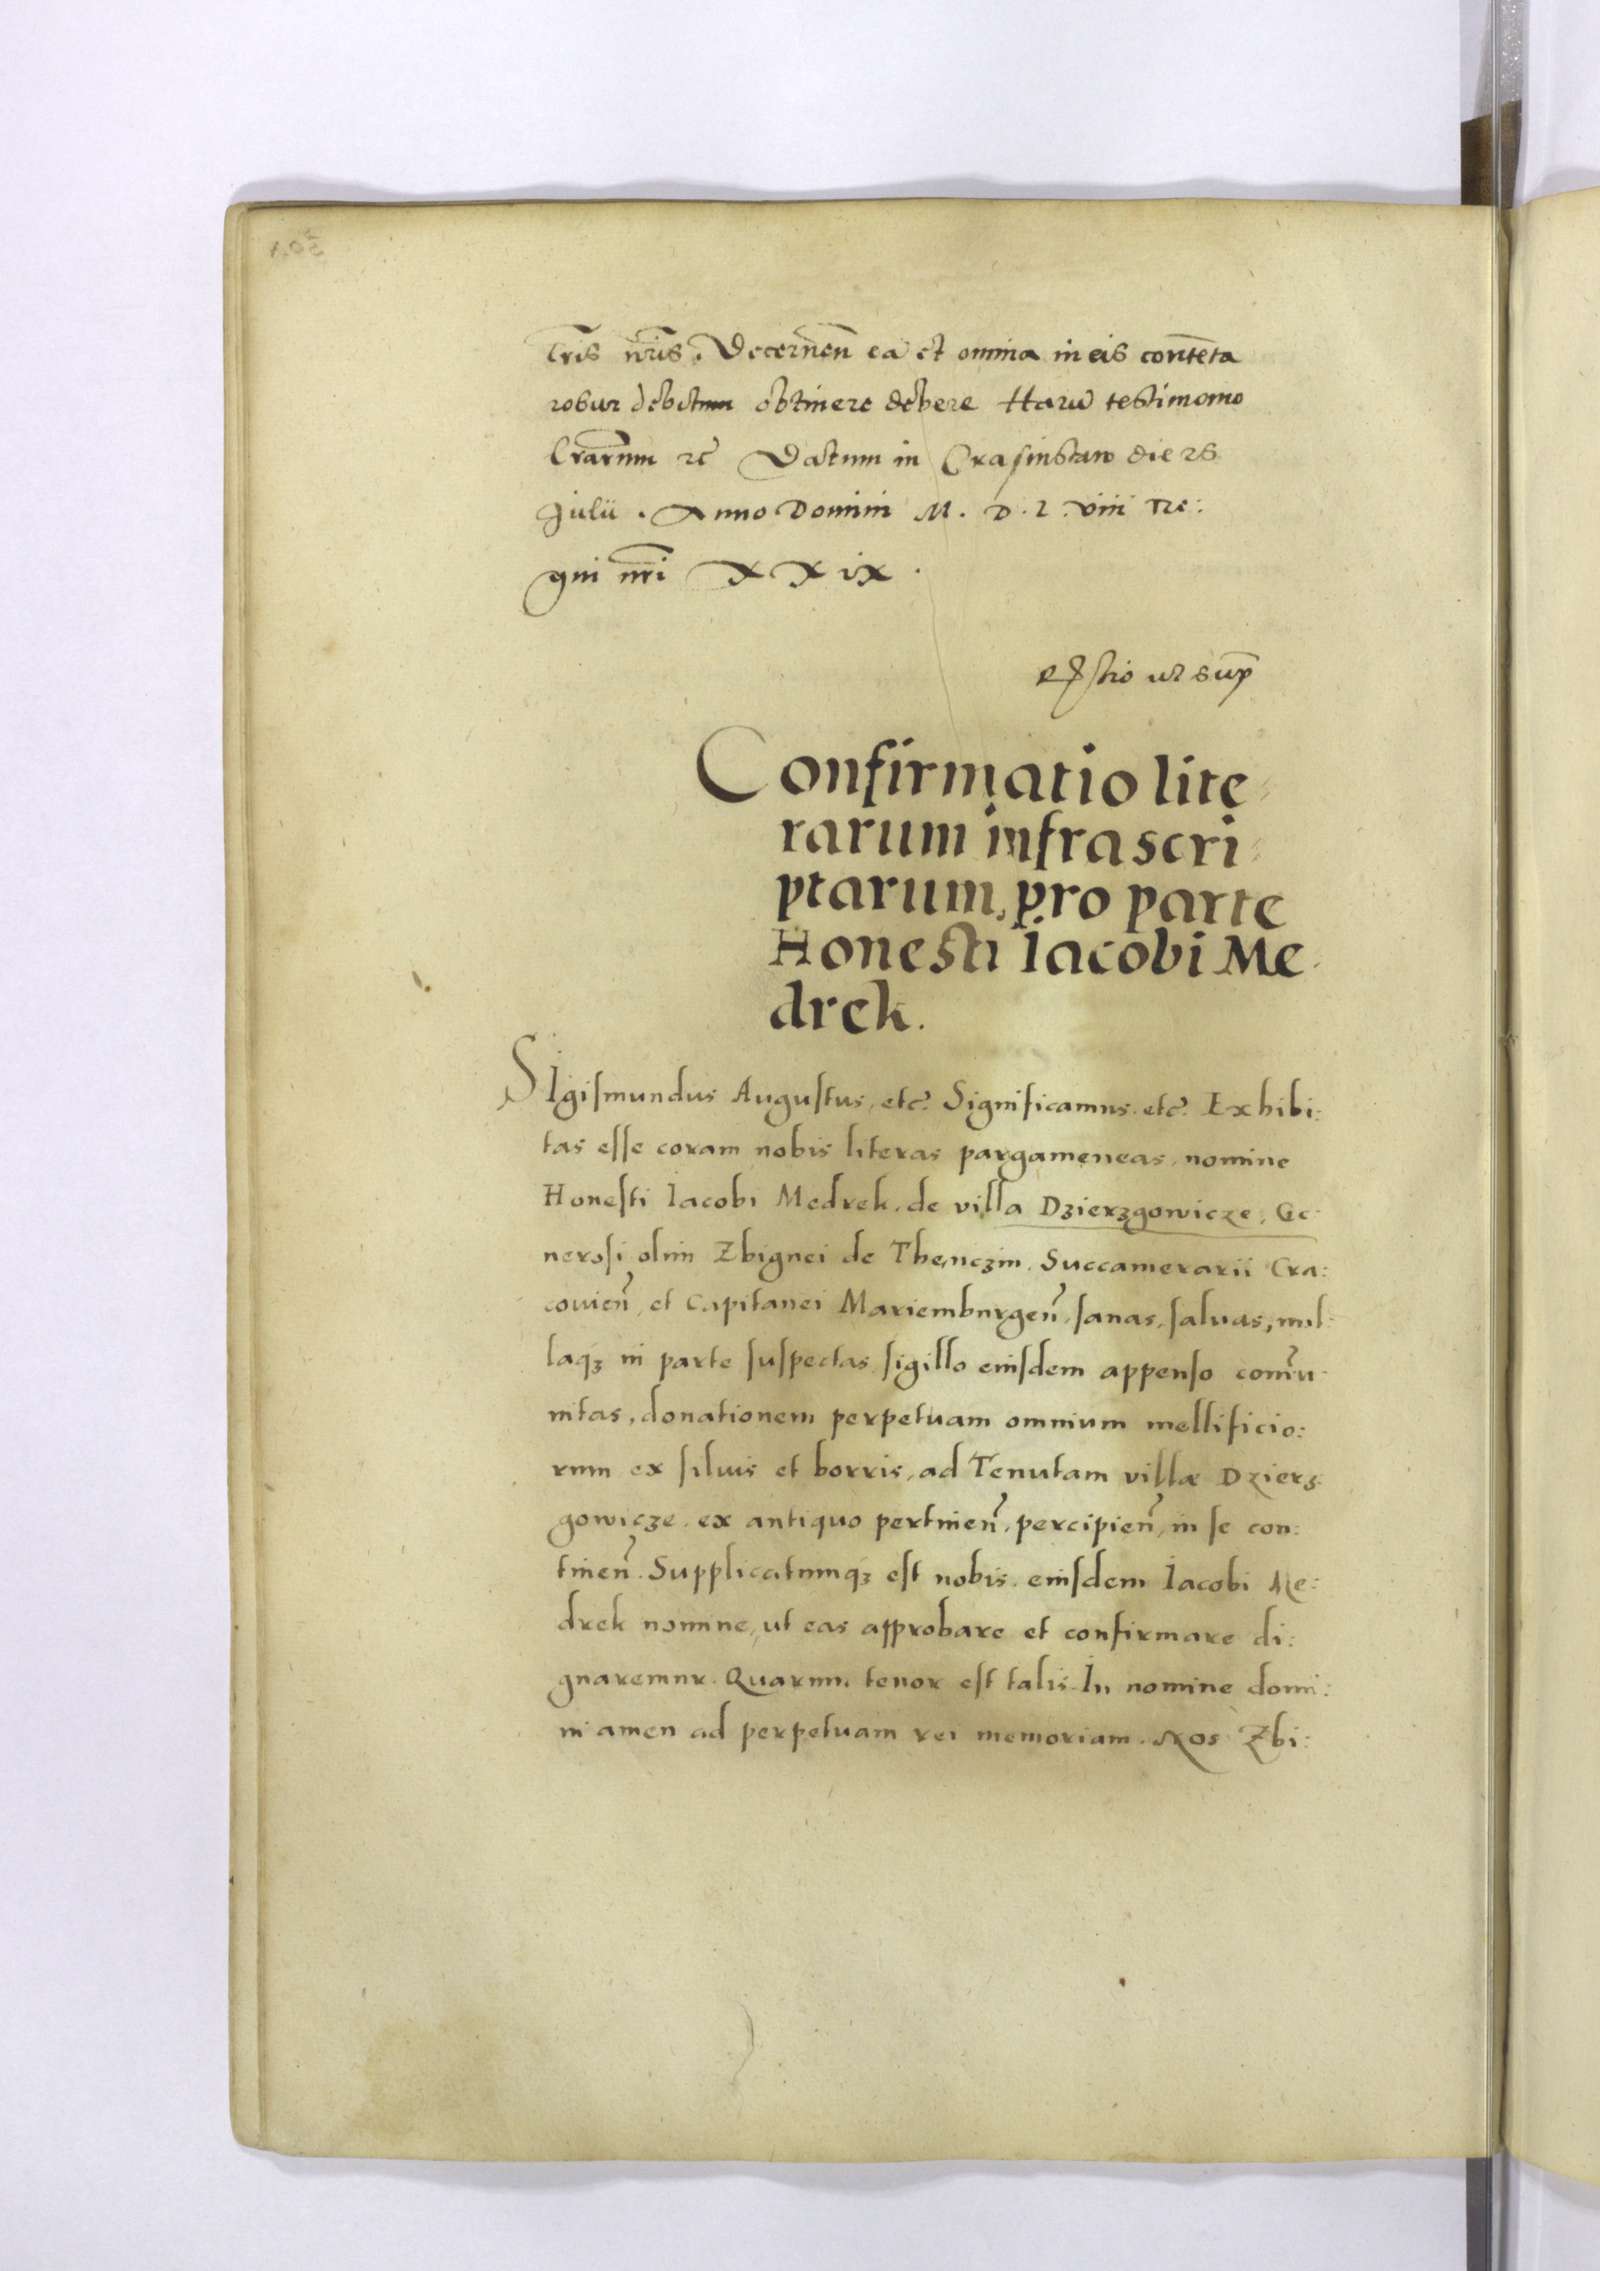 lrīs nrīs. Decernen̄ ea et omnia in eis contēta
robur debitum obtinere debere Harū testimonio
lrarum etc̄ Datum in Crasinstaw die 28
Julii. Anno Domini M. D. L. viii Re:
gni nrī XXix.
ut sup̄
Confirmatio lite
rarum infrascri
ptarum, pro parte
Honesti Iacobi Me
drek.
SIgiſmundus Auguſtus, etc̄. Significamus. etc̄. Exhibi:
tas eſſe coram nobis literas pargameneas, nomine
Honeſti Iacobi Medrek. de villa Dzierzgowicze, Ge:
neroſi olim Zbignei de Thenczin. Succamerarii Cra:
couien̄, et Capitanei Mariemburgen̄, ſanas, ſaluas, nul:
laqꝫ in parte ſuſpectas ſigillo eiuſdem appenſo com̄u
nitas, donationem perpetuam omnium mellificio:
rum ex ſiluis et borris, ad Tenutam villæ Dzierz
gowicze. ex antiquo pertinen̄, percipien̄, in ſe con:
tinen̄. Supplicatumqꝫ eſt nobis. eiuſdem Iacobi Me:
drek nomine, ut eas approbare et confirmare di:
gnaremur. Quarum tenor eſt talis. In nomine domi:
ni amen ad perpetuam rei memoriam. Nos Zbi: